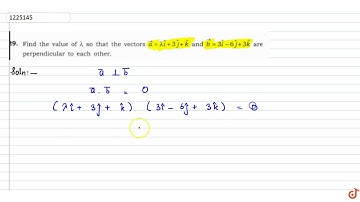 1225145
19. Find the value of λ so that the vectors a⃗ = λî + 3ĵ + k̂ and b⃗ = 3î − 6ĵ + 3k̂ are
perpendicular to each other.
Soln:—
a̅ ⊥ b̅
a̅ . b̅ = 0
(λî + 3ĵ + k̂) (3î − 6ĵ + 3k̂) = 0